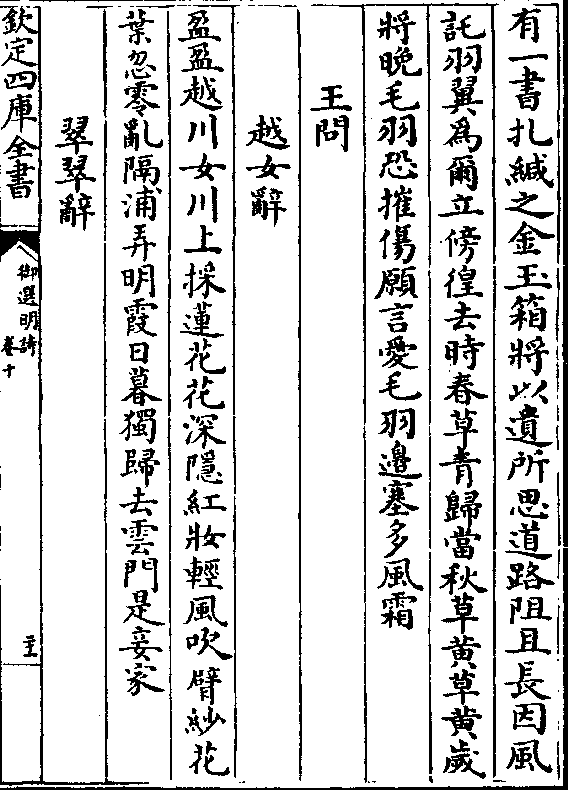 有一書扎緘之金玉箱將以遺所思道路阻且長因風
託羽翼為爾立傍徨去時春草青歸當秋草黄草黄歲
將晚毛羽恐摧傷願言愛毛羽邉塞多風霜
王問
越女辭
盈盈越川女川上採蓮花花深隱紅妝輕風吹臂紗花
葉忽零亂隔浦弄明霞日暮獨歸去雲門是妾家
翠翠辭
欽定四庫全書
御選明詩
卷十